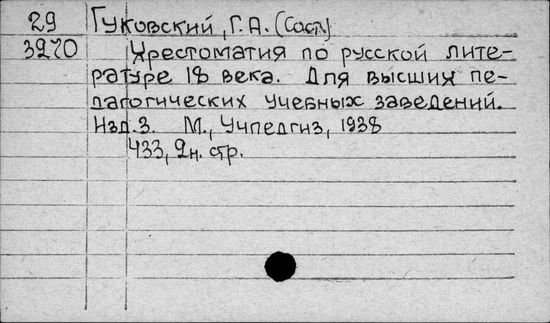 29 Гуковский, Г. А. (Сост)
3970 Хрестоматия по русской лите-
ратуре 18 века. Для высших пе-
дагогических учебных заведений.
Изд. 3. М., Учпедгиз, 1938
433, 2н. стр.